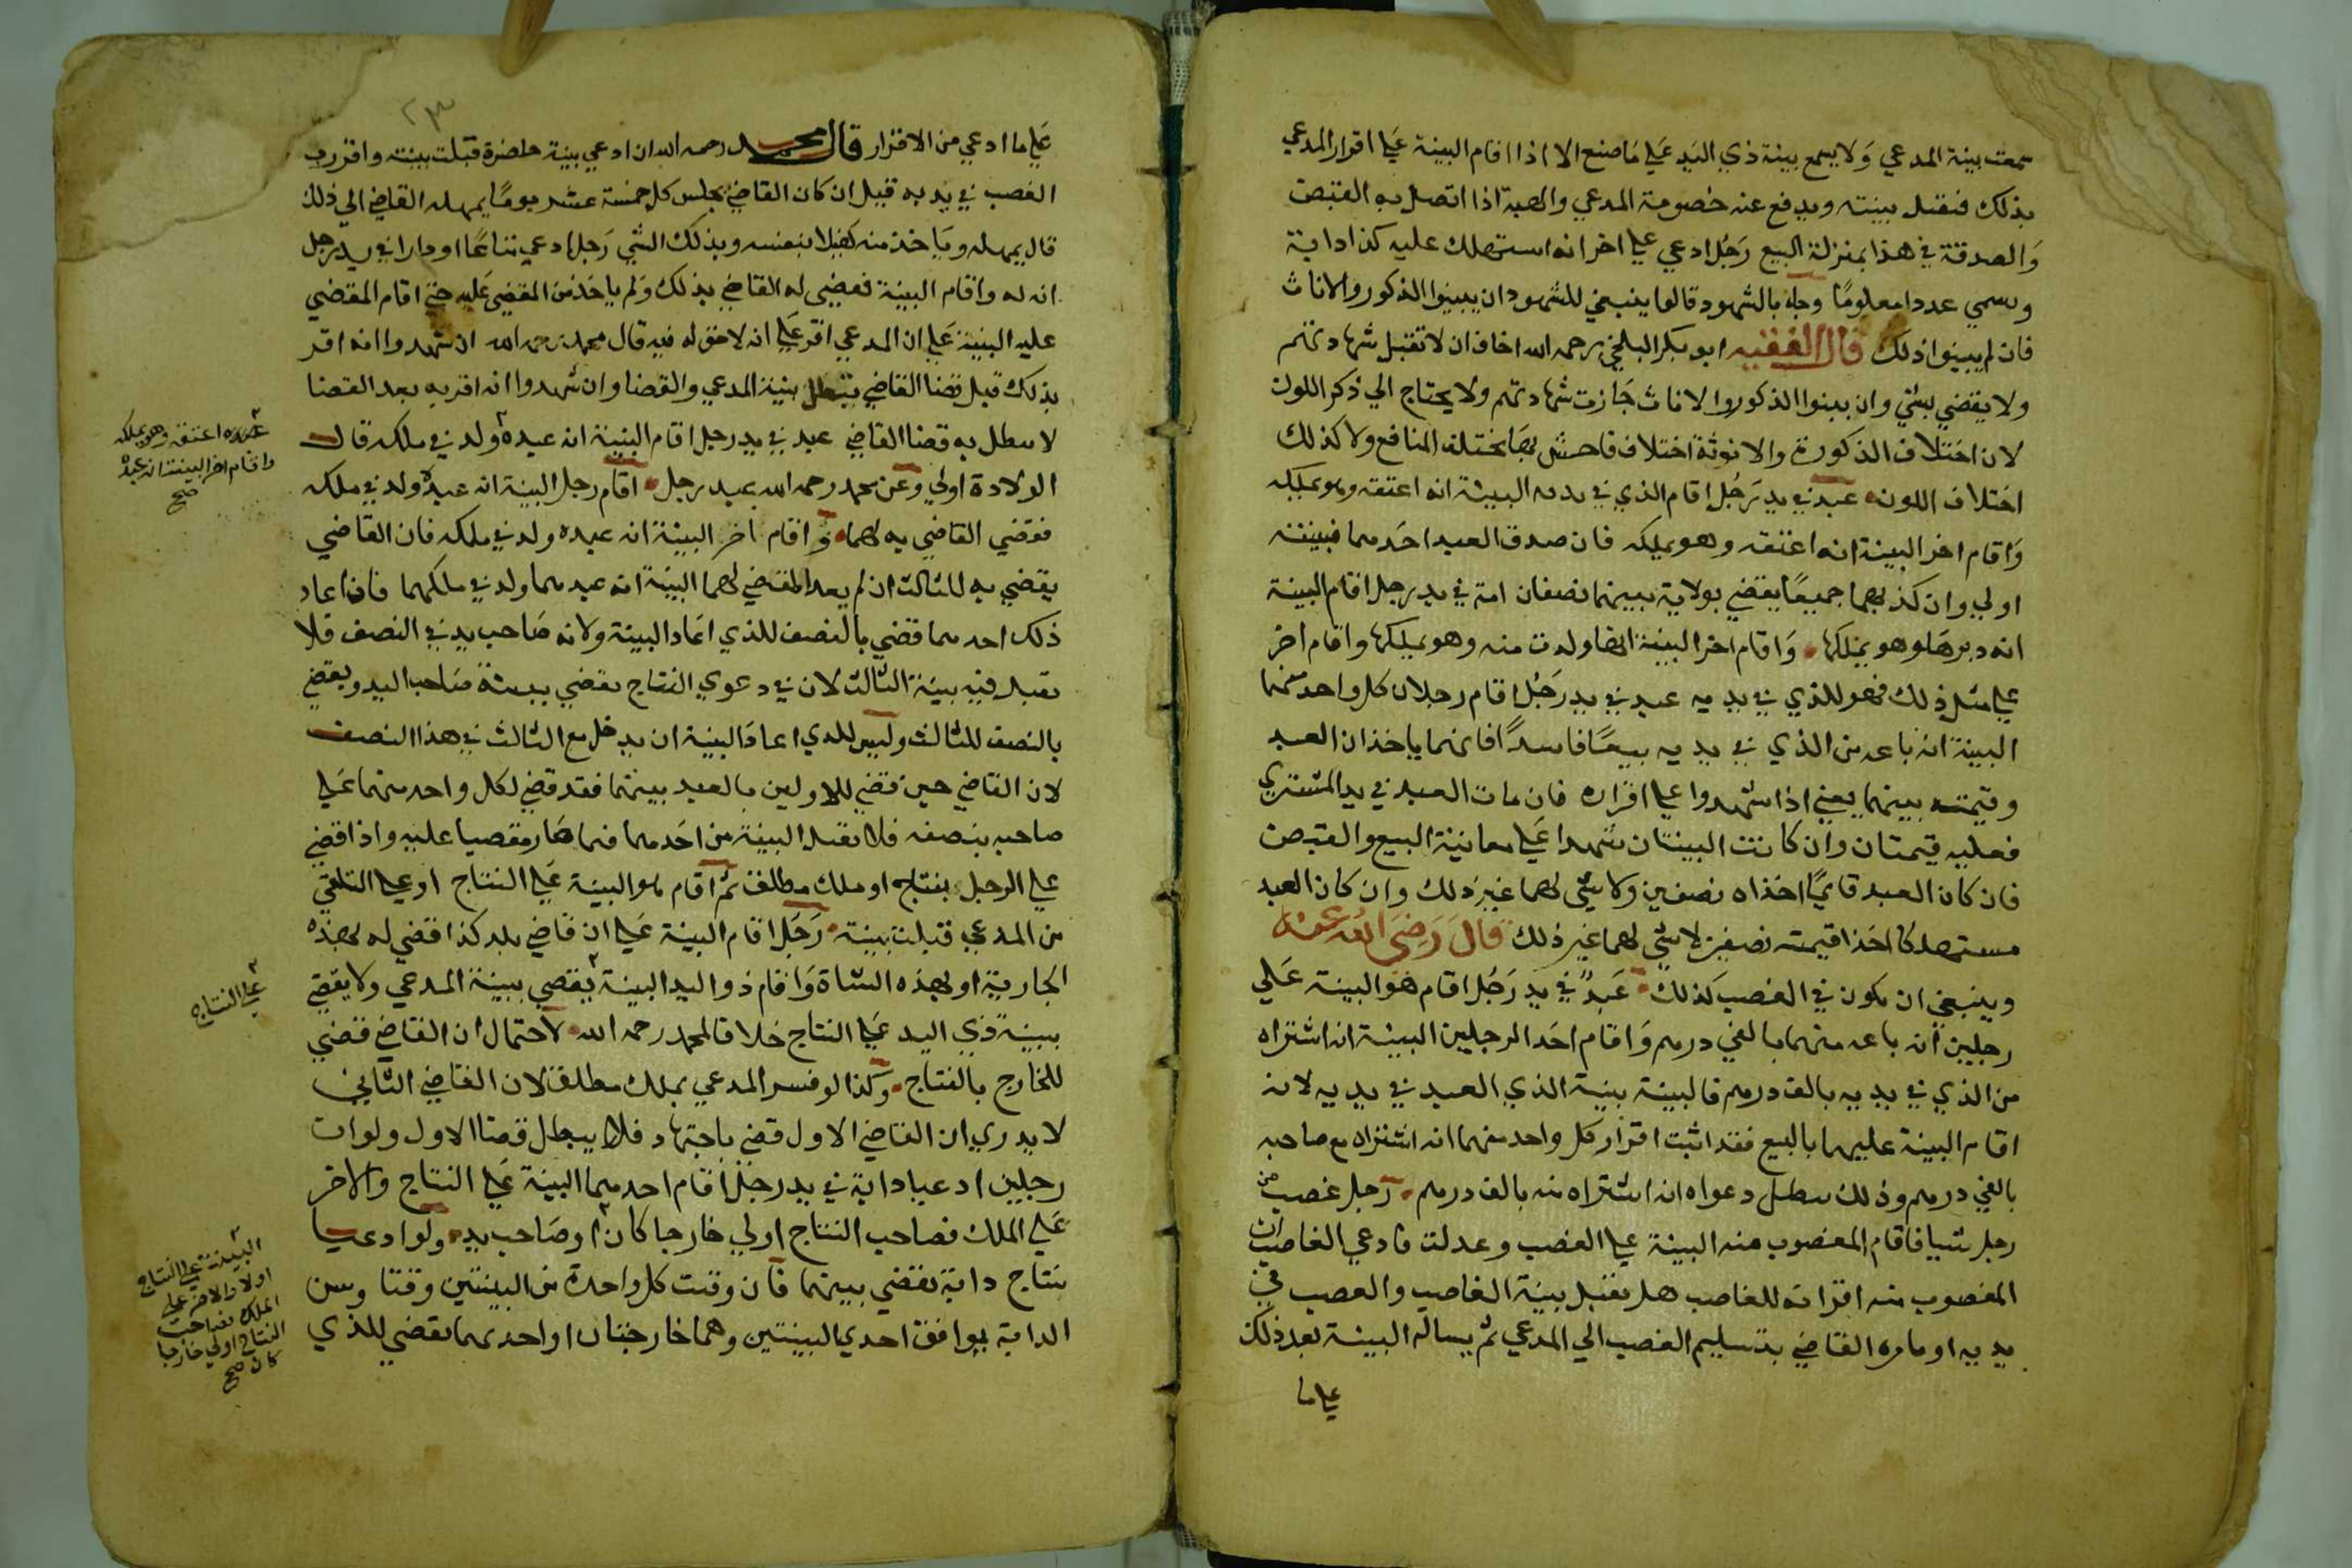 سمعت بينة المدعي ولا يسمع بينة ذي اليد علي ما صنع الا اذا اقام البينة علي اقرار المدعي
بذلك فتقبل بينته ويدفع عنه خصومة المدعي والهبة اذا اتصل به القبض
والصدقة في هذا بمنزلة البيع رجل ادعي علي اخر انه استهلك عليه كذا دابة
وسمي عددا معلوما وجاء بالشهود قالوا ينبغي للشهود ان يبينوا الذكور والاناث
فان لم يبينوا ذلك قال الفقيه ابو بكر البلخي رحمه الله اخاف ان لا تقبل شهادتهم
ولا يقضي بشي وان بينوا الذكور والاناث جازت شهادتهم ولا يحتاج الي ذكر اللون
لان اختلاف الذكورة والانوثة اختلاف فاحش بها يختلف المنافع ولا كذلك
اختلاف اللون عبد في يد رجل اقام الذي في يده البينة انه اعتقه وهو يملكه
واقام اخر البينة انه اعتقه وهو يملكه فان صدق العبد احدهما فبينته
اولي وان كذبهما جميعا يقضي بولايه بينهما نصفان امة في يد رجل اقام البينة
انه دبرها وهو يملكها واقام اخر البينة انها ولدت منه وهو يملكها واقام اخر
علي مثل ذلك فهو للذي في يديه عبد في يد رجل اقام رجلان كل واحد منهما
البينة انه باعه من الذي في يديه بيعا فاسدا فانهما ياخذان العبد
وقيمته بينهما يعني اذا شهدوا علي اقراره فان مات العبد في يد المشتري
فعليه قيمتان وان كانت البينتان شهدا علي معاينة البيع والقبض
فان كان العبد قايما اخذاه نصفين ولا شي لهما غير ذلك وان كان العبد
مستهلكا اخذا قيمته نصفين لا شي لهما غير ذلك قال رضي الله عنه
وينبغي ان يكون في الغصب كذلك عبد في يد رجل اقام هو البينة علي
رجلين انه باعه منهما بالفي درهم واقام احد الرجلين البينة انه اشتراه
من الذي في يديه بالف درهم فالبينة بينة الذي العبد في يديه لانه
اقام البينة عليهما بالبيع فقد اثبت اقرار كل واحد منهما انه اشتراه مع صاحبه
بالفي درهم وذلك يبطل دعواه انه اشتراه منه بالف درهم رجل غصب من
رجل شيا فاقام المغصوب منه البينة علي الغصب وعدلت فادعي الغاصب ان
المغصوب منه اقر انه للغاصب هل تقبل بينة الغاصب والغصب في
يديه او يامره القاضي بتسليم الغصب الي المدعي ثم يساله البينة بعد ذلك
علي ما
٢٣
علي ما ادعي من الاقرار قال محمد رحمه الله ان ادعي بينة حاضرة قبلت بينته واقررت
الغصب في يديه قيل ان كان القاضي يجلس كل خمسة عشر يوما يمهله القاضي الي ذلك
قال يمهله وياخذ منه كفيلا بنفسه وبذلك الشي رجل ادعي نتاجا او دارا في يد رجل
انه له واقام البينة فقضي له القاضي بذلك ولم ياخذ من المقضي عليه حتي اقام المقضي
عليه البينة علي ان المدعي اقر علي انه لا حق له فيه قال محمد رحمه الله ان شهدوا انه اقر
بذلك قبل قضا القاضي يبطل بينة المدعي والقضا وان شهدوا انه اقر به بعد القضا
لا يبطل به قضا القاضي عبد في يد رجل اقام البينة انه عبده ولد في ملكه قال
الولادة اولي وعن محمد رحمه الله عبد برجل اقام رجل البينة انه عبده ولد في ملكه
فقضي القاضي به لهما واقام اخر البينة انه عبده ولد في ملكه فان القاضي
يقضي به للثالث ان لم يعد المقضي لهما البينة انه عبدهما ولد في ملكهما فان اعاد
ذلك احدهما قضي بالنصف للذي اعاد البينة ولانه صاحب يد في النصف فلا
تقبل فيه بينة الثالث لان في دعوي النتاج يقضي ببينة صاحب اليد ويقضي
بالنصف للثالث وليس للذي اعاد البينة ان يدخل مع الثالث في هذا النصف
لان القاضي حين قضي للاولين بالعبد بينهما فقد قضي لكل واحد منهما علي
صاحبه بنصفه فلا تقبل البينة من احدهما فيما صار مقضيا عليه واذا قضي
علي الرجل بنتاج او ملك مطلق ثم اقام هو البينة علي النتاج او علي التلقي
من المدعي قبلت بينة رجل اقام البينة علي ان قاضي بلد كذا قضي له بهذه
الجارية او بهذه الشاة واقام ذو اليد البينة يقضي ببينة المدعي ولا يقضي
ببينة ذي اليد علي النتاج خلافا لمحمد رحمه الله لاحتمال ان القاضي قضي
للخارج بالنتاج وكذا لو فسر المدعي بملك مطلق لان القاضي الثاني
لا يدري ان القاضي الاول قضي باجتهاد فلا يبطل قضا الاول ولو ان
رجلين ادعيا دابة في يد رجل اقام احدهما البينة علي النتاج والاخر
علي الملك فصاحب النتاج اولي خارجا كان او صاحب يد ولو ادعيا
نتاج دابة يقضي بينهما فان وقت كل واحدة من البينتين وقتا وسن
الدابة يوافق احدي البينتين وهما خارجان او احدهما يقضي للذي
عبده اعتقه وهو يملكه
واقام اخر البينة انه عبده
صح
علي النتاج
البينة علي النتاج
اولا والاخر علي
الملك فصاحب
النتاج اولي خارجا
كان صح